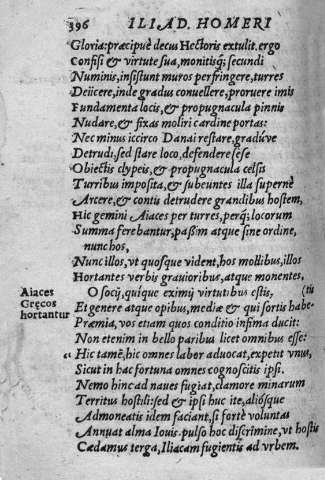 396 ILIAD. HOMERI
Gloria: præcipuè decus Hectoris extulit. ergo
Confisi & virtute sua, monitisq́; secundi
Numinis, insistunt muros perfringere, turres
Deiicere, inde gradus conuellere, proruere imis
Fundamenta locis, & propugnacula pinnis
Nudare, & fixas moliri cardine portas:
Nec minus iccirco Danai restare, gradúve
Detrudi: sed stare loco, defendere sese
Obiectis clypeis, & propugnacula celsis
Turribus imposita, & subeuntes illa supernè
Arcere, & contis detrudere grandibus hostem,
Hic gemini Aiaces per turres, perq́; locorum
Summa ferebantur, passim atque sine ordine,
nunc hos,
Nunc illos, vt quosque vident, hos mollibus, illos
Hortantes verbis grauioribus, atque monentes.
Aiaces
Grecos
hortantur
O socij, quique eximij virtutibus estis, (tis
Et genere atque opibus, mediæ & qui sortis habe-
Præmia, vos etiam quos conditio infima ducit:
Non etenim in bello paribus licet omnibus esse:
“ Hic tamẽ, hic omnes labor aduocat, expetit vnus,
Sicut in hac fortuna omnes cognoscitis ipsi.
Nemo hinc ad naues fugiat, clamore minarum
Territus hostili: sed & ipsi huc ite, aliósque
Admoneatis idem faciant, si fortè voluntas
Annuat alma Iouis. pulso hoc discrimine, vt hostis
Cædamus terga, Iliacam fugientis ad vrbem.